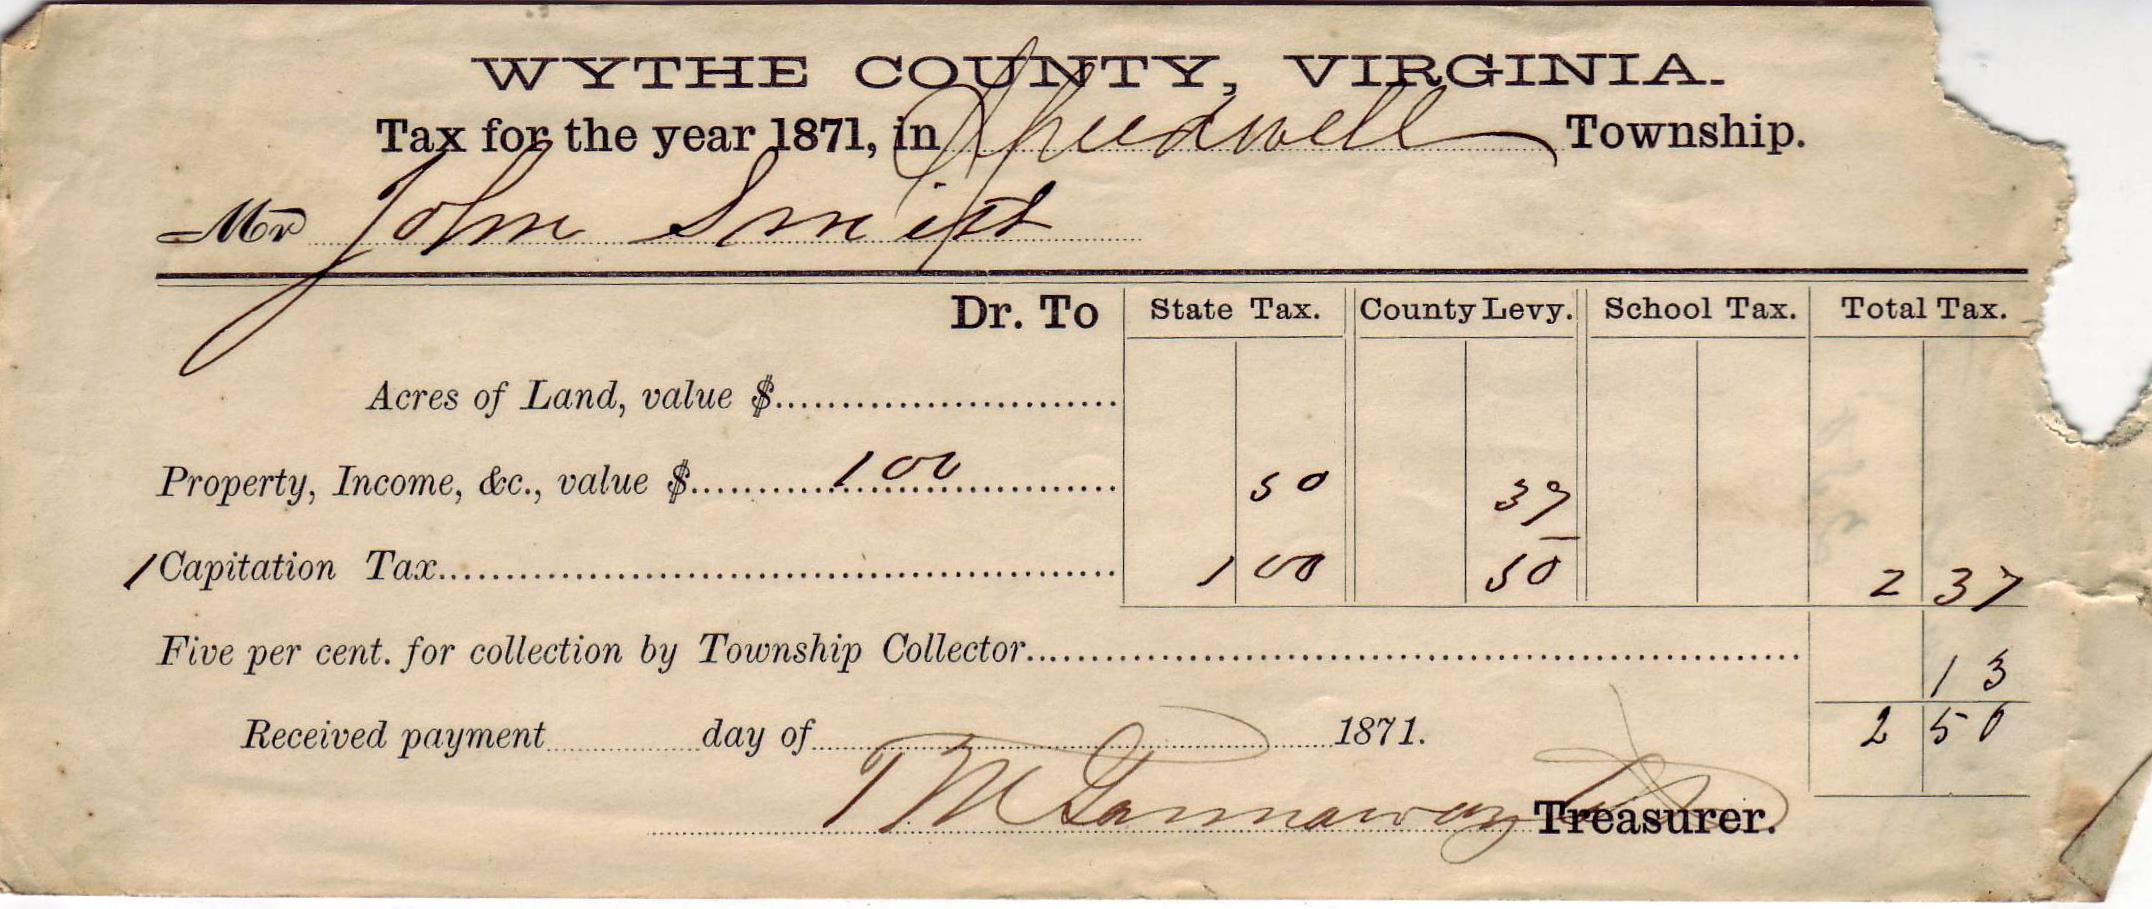 WYTHE COUNTY, VIRGINIA.
Tax for the year 1871, in Speedwell Township.
Mr John Smith
Dr. To State Tax. County Levy. School Tax. Total Tax.
Acres of Land, value $
Property, Income, &c., value $ 100 50 37
1 Capitation Tax 1 00 50 2 37
Five per cent. for collection by Township Collector 13
Received payment day of 1871. 2 50
T M Gannaway Treasurer.